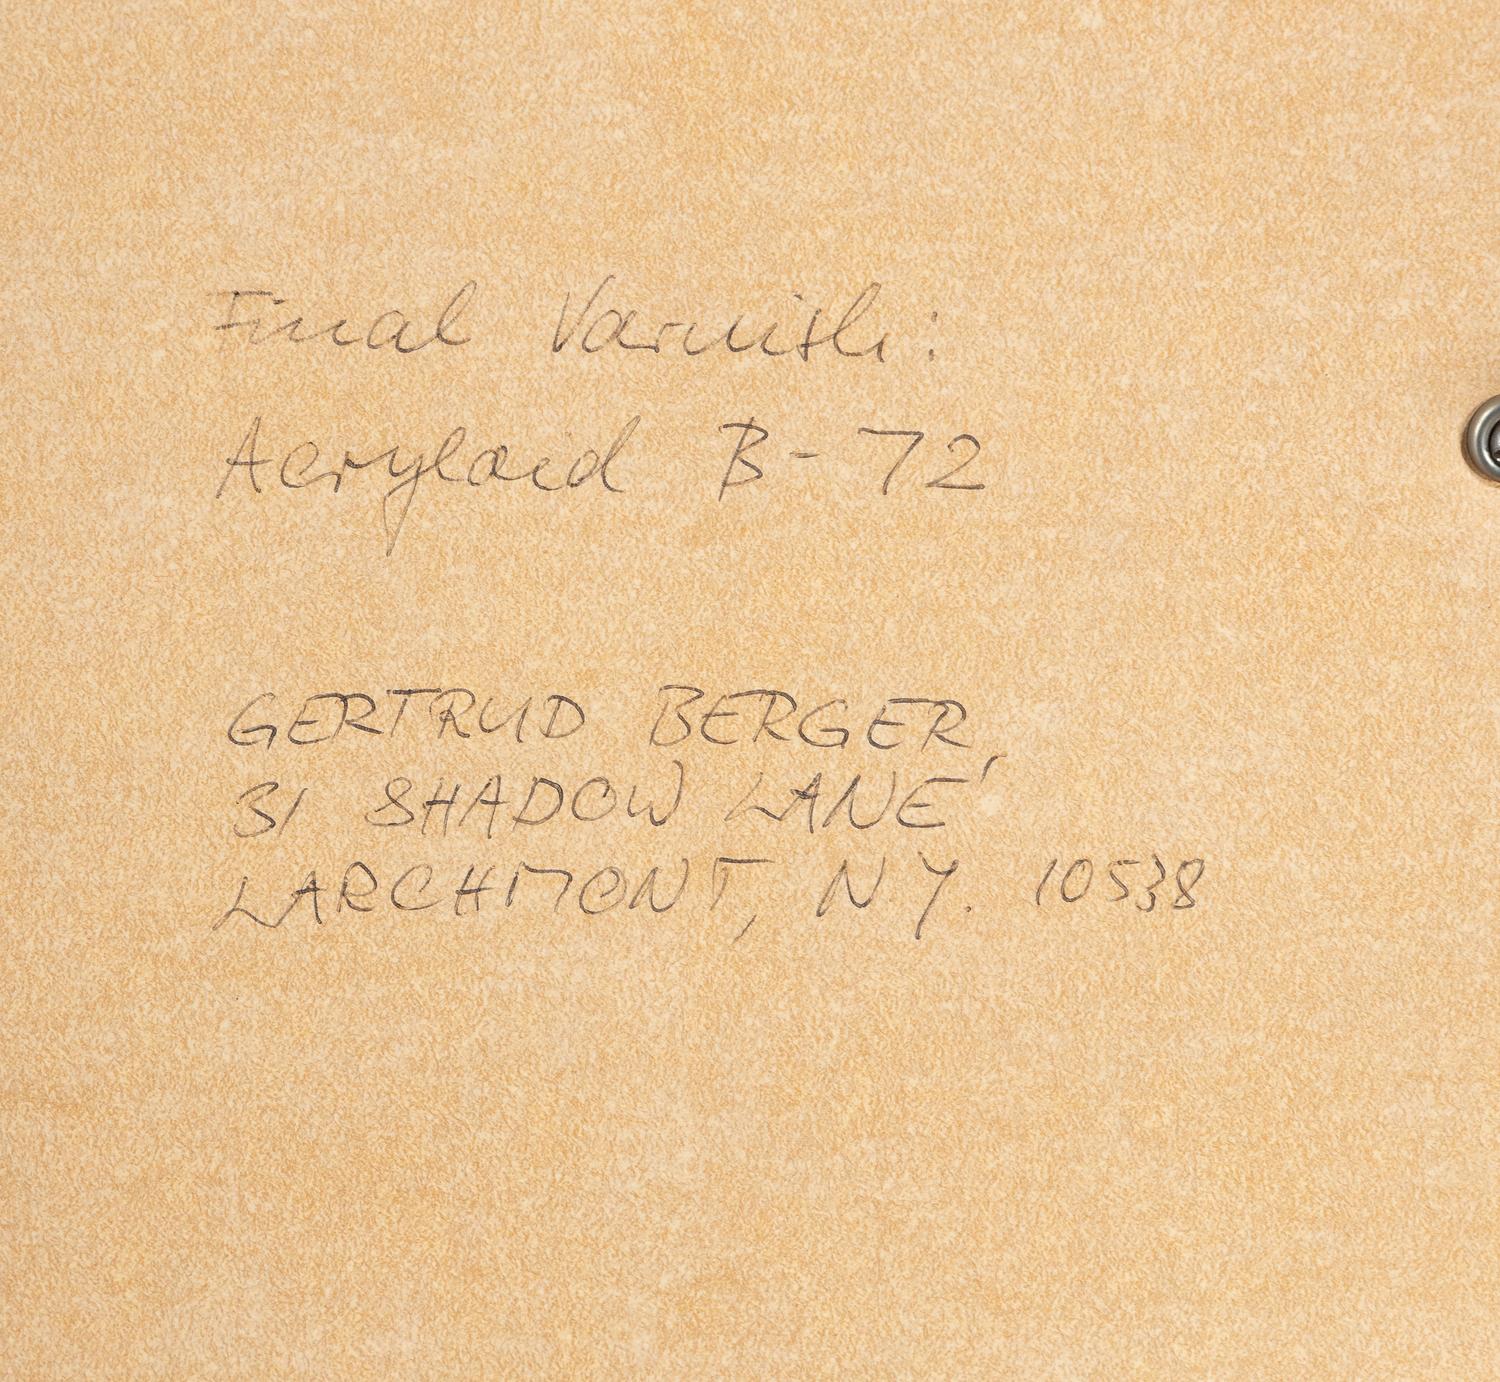 Final Varnish:
Acryloid B-72
GERTRUD BERGER,
31 SHADOW LANE,
LARCHMONT, N.Y. 10538